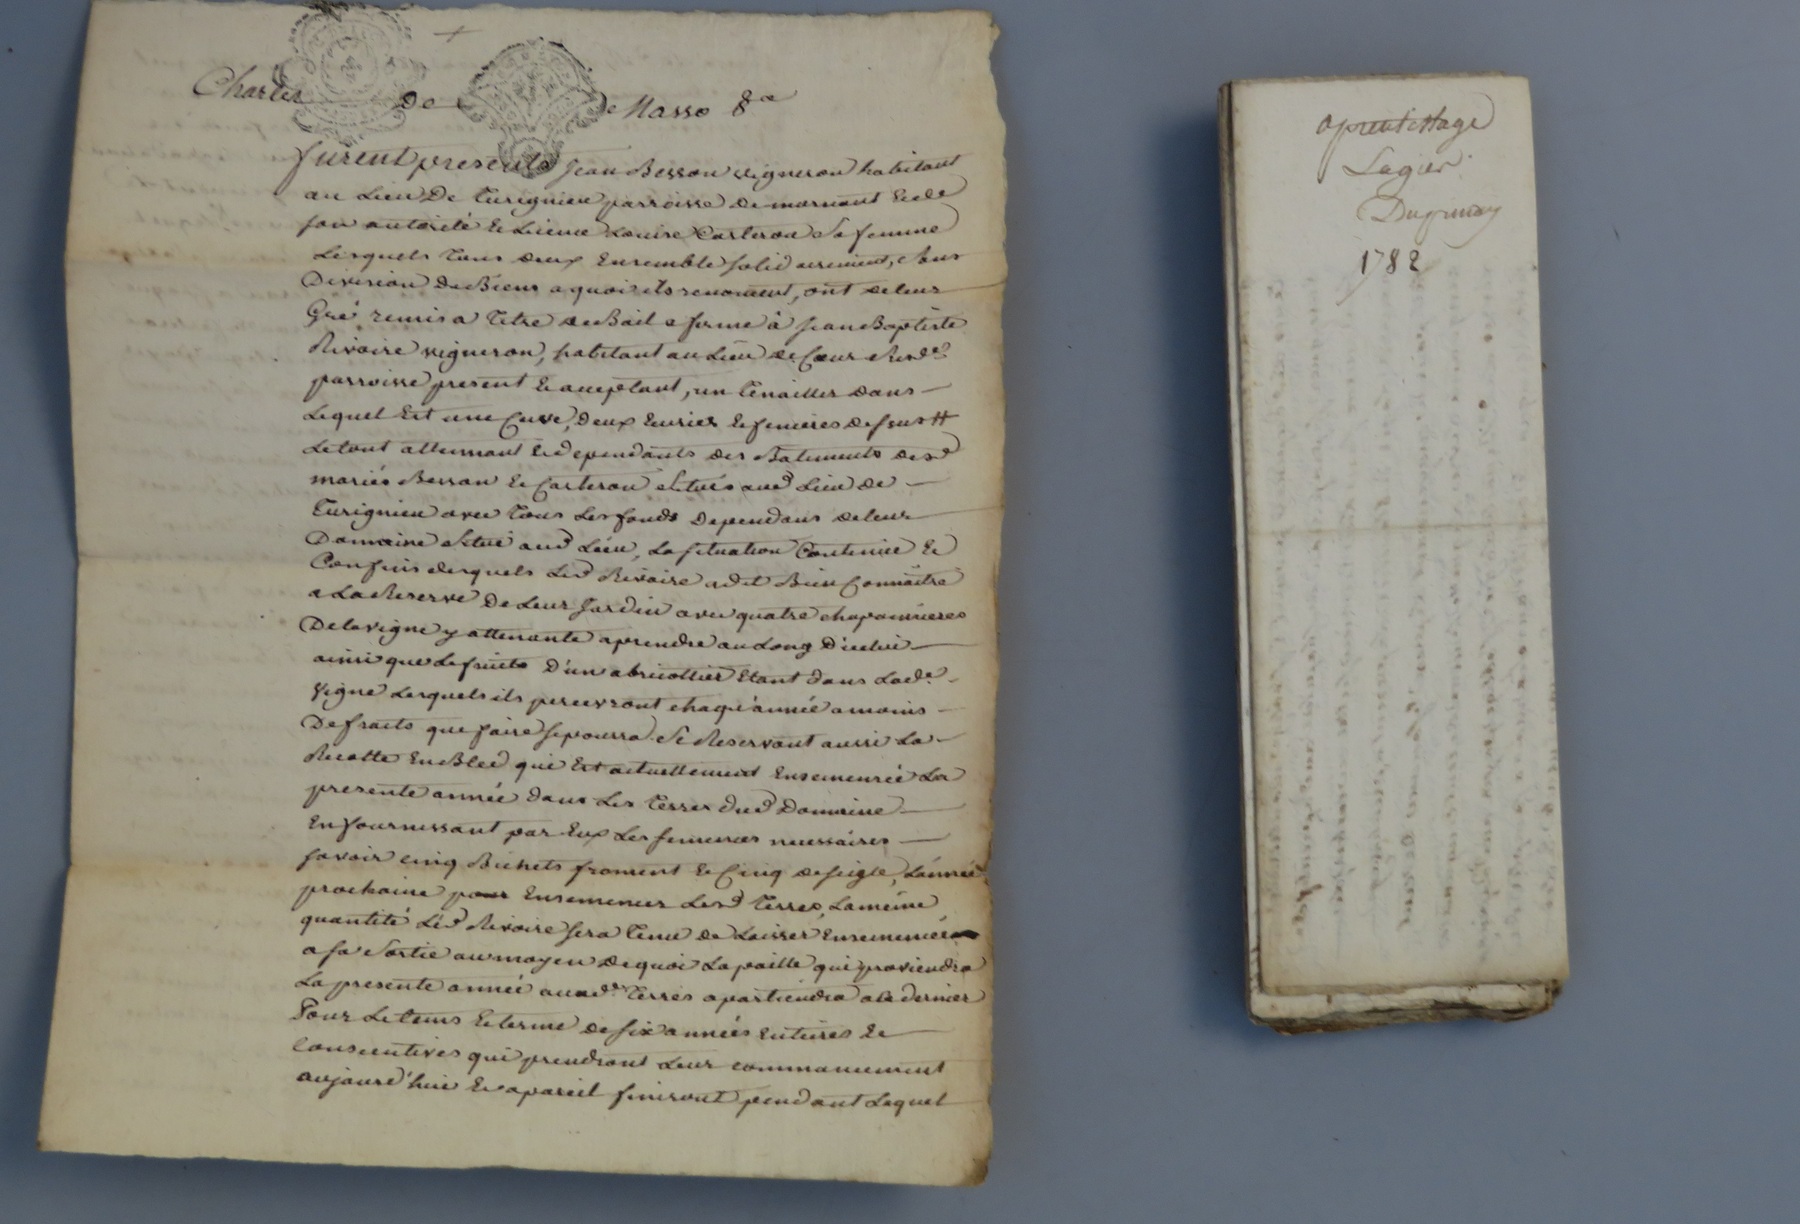 Charles de de Masso 8e
furent presents Jean Besson vigneron habitant
au Lieu De Turignieu parroisse de mornant Et de
son autorité Et Licence Louise Carteron Sa femme
Lesquels tous deux Ensemble solidairement, Sans
Division De Biens a quoi ils renoncent, ont de leur
Gré remis a titre de Bail a ferme à Jean Baptiste
Rivoire vigneron, habitant au Lieu de Coeur Susde
parroisse present Et acceptant, un Tenailler dans
Lequel Est une Cuve, Deux Ecuries Et fenieres dessus #
Le tout attenant Et dependants des Batiments desd
mariés Besson Et Carteron Situés aud Lieu de
Turignieu avec tous Les fonds Dependans de leur
Domaine Situé aud Lieu, La situation Contenue Et
Confins desquels Led Rivoire a dit Bien Connaitre
a La Reserve De Leur Jardin avec quatre chaponnieres
De la vigne y attenante a prendre au Long D'icelui
ainsi que Le fruits D'un abricottier Etant dans Lade
vigne Lesquels ils percevront chaqu'année a moins
De fraits que faire se pourra Se Reservant aussi La
Recolte En Bled qui Est actuellement Ensemencée La
presente année dans Les Terres dud Domaine
En fournissant par Eux Les semences necessaires
savoir cinq Bichets froment Et Cinq de seigle, L'année
prochaine pour Ensemencer Lesd Terres, La même
quantité Led Rivoire sera Tenu de Laisser Ensemencée
a sa Sortie au moyen de quoi La paille qui proviendra
La presente année auxde Terres apartiendra a ce dernier
Pour Le tems Et terme de six années Entieres Et
Consecutives qui prendront Leur commancement
aujourd'hui Et a pareil finiront pendant Lequel
aprentissage
Lagier
Dugrinay
1782